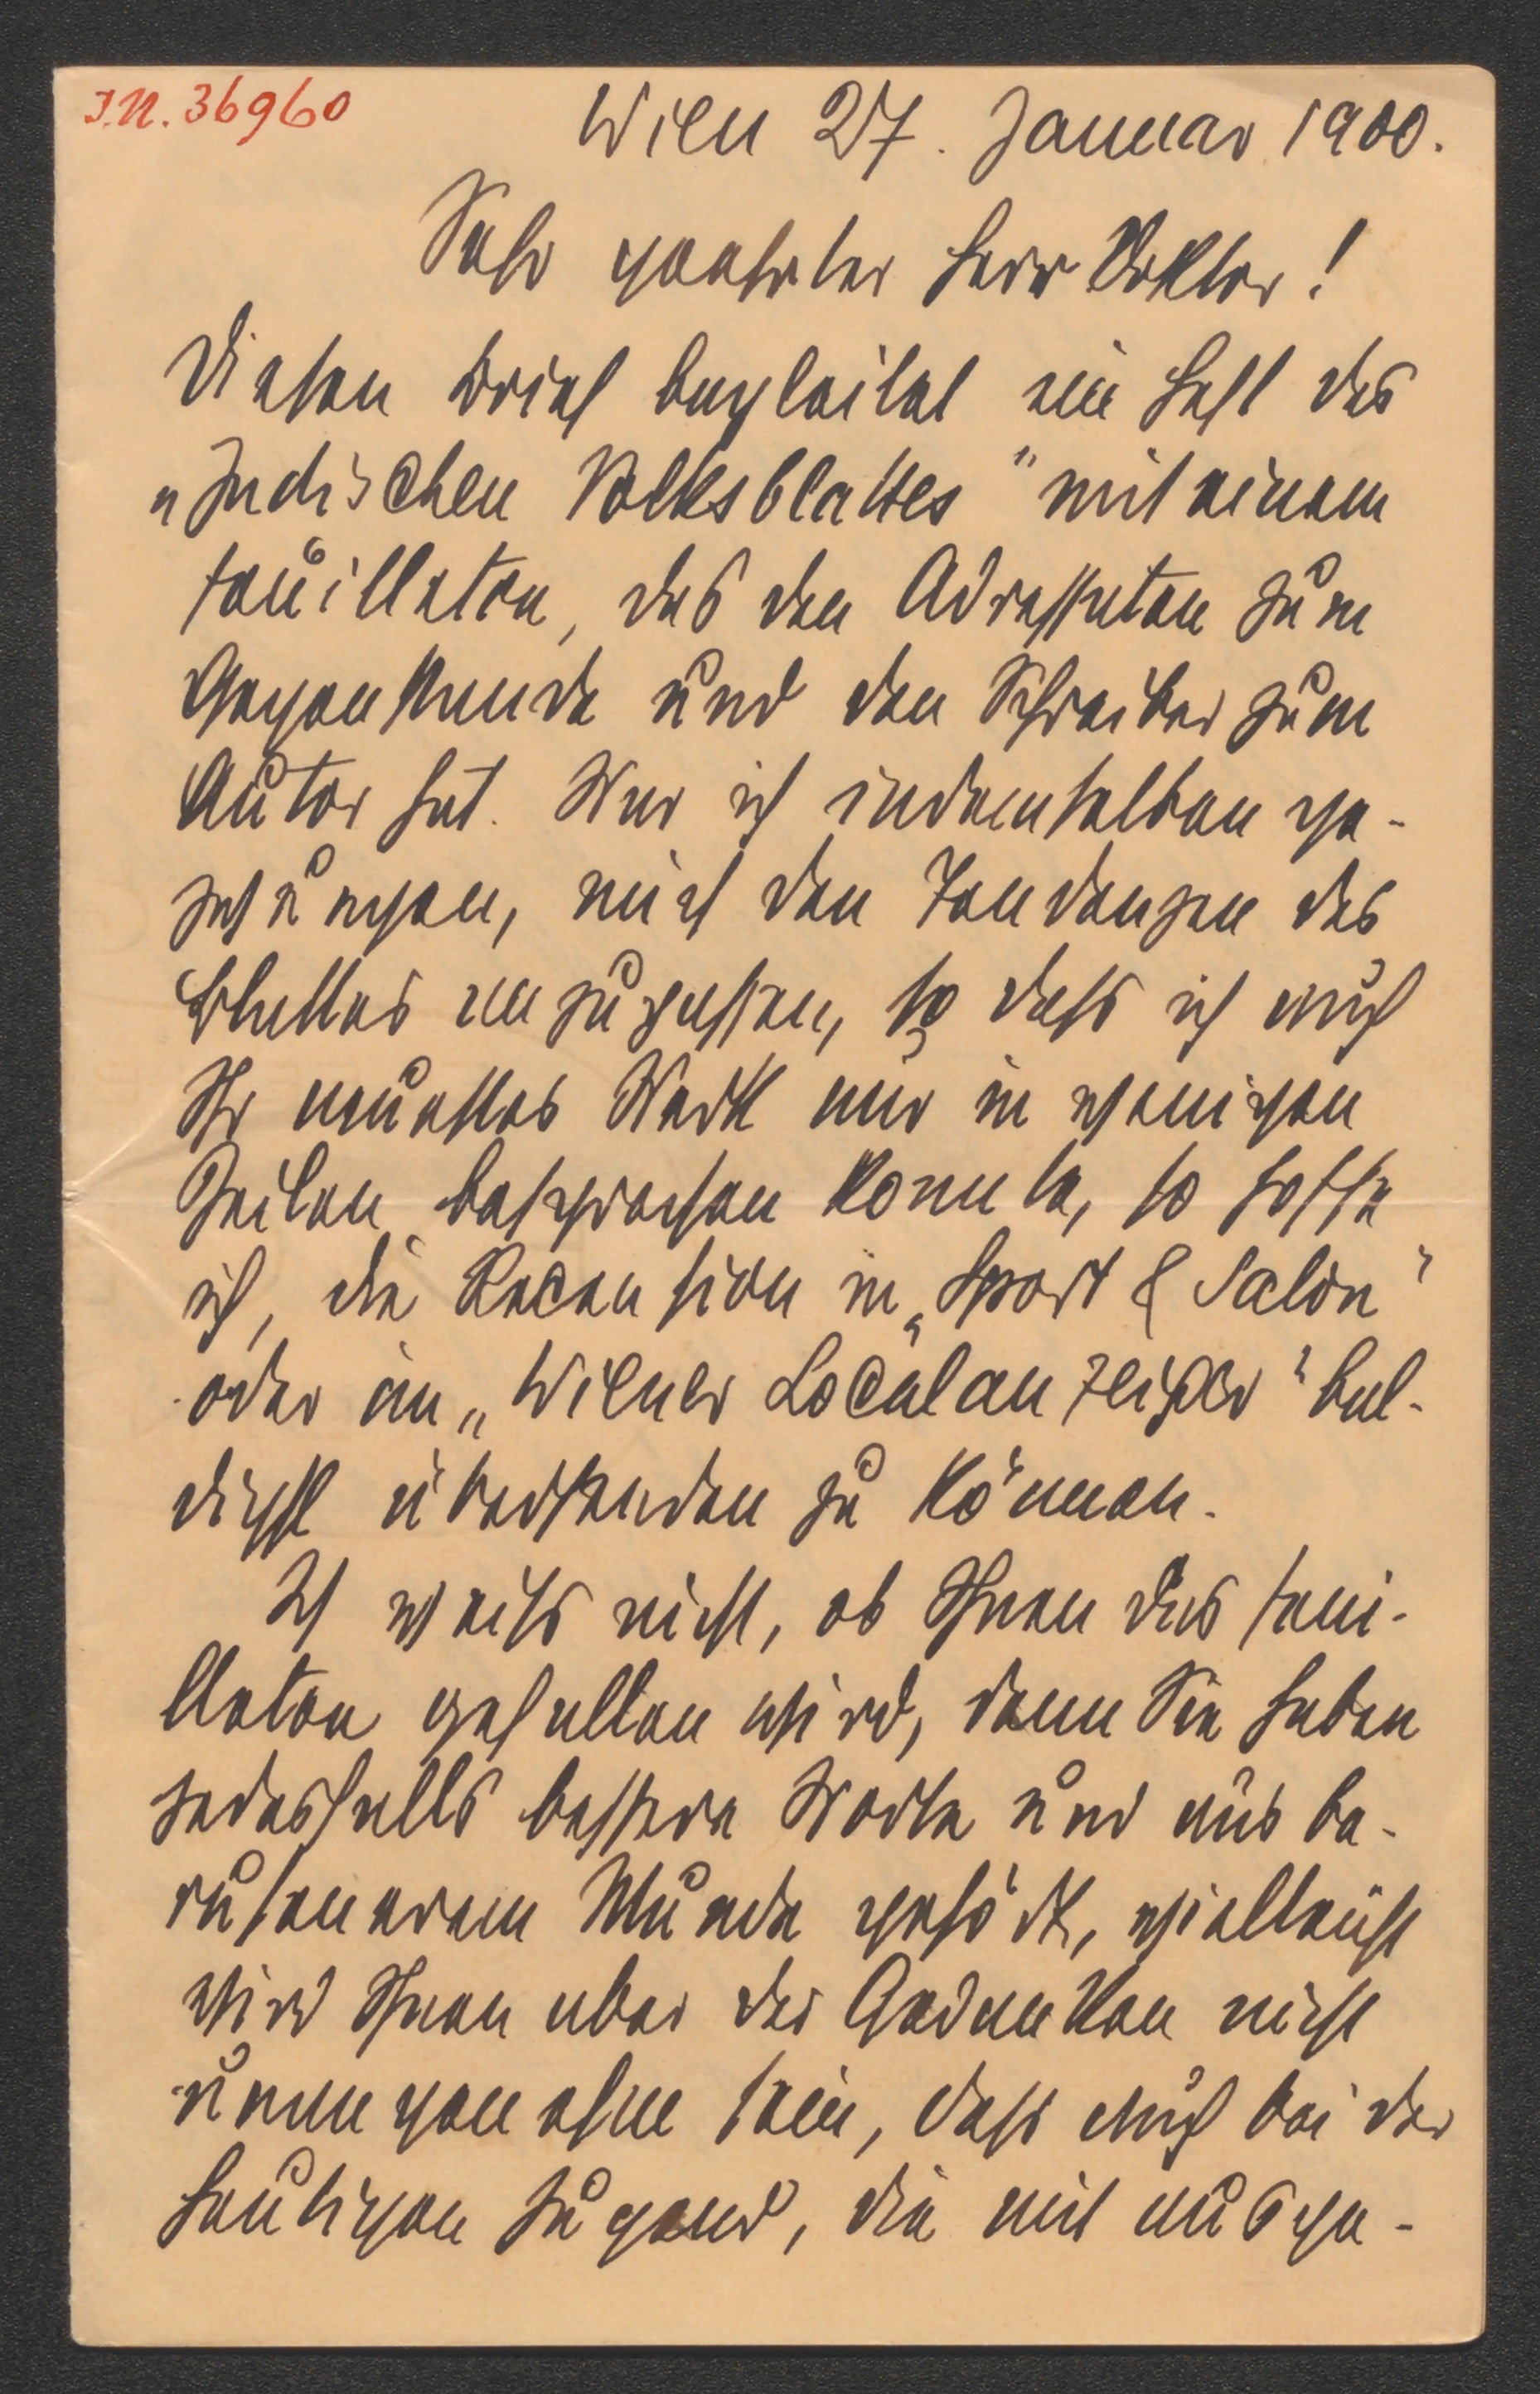 I.N. 36960
Wien 27. Januar 1900.
Sehr geehrter Herr Doktor!
Diesen Brief begleitet ein Heft des
„Jüdischen Volksblattes" mit einem
Feuilleton, das den Adressaten zum
Gegenstande und den Schreiber zum
Autor hat. War ich in demselben ge-
zwungen, mich den Tendenzen des
Blattes anzupassen, so dass ich auch
Ihr neuestes Werk nur in wenigen
Zeilen besprechen konnte, so hoffe
ich, die Recension in „Sport & Salon"
oder im „Wiener Localanzeiger" bal-
digst übersenden zu können.
Ich weiss nicht, ob Ihnen das Feui-
lleton gefallen wird, denn Sie haben
jedesfalls bessere Worte und aus be-
rufenerem Munde gehört, vielleicht
wird Ihnen aber der Gedanken nicht
unangenehm sein, dass auch bei der
heutigen Jugend, die mit ausge-